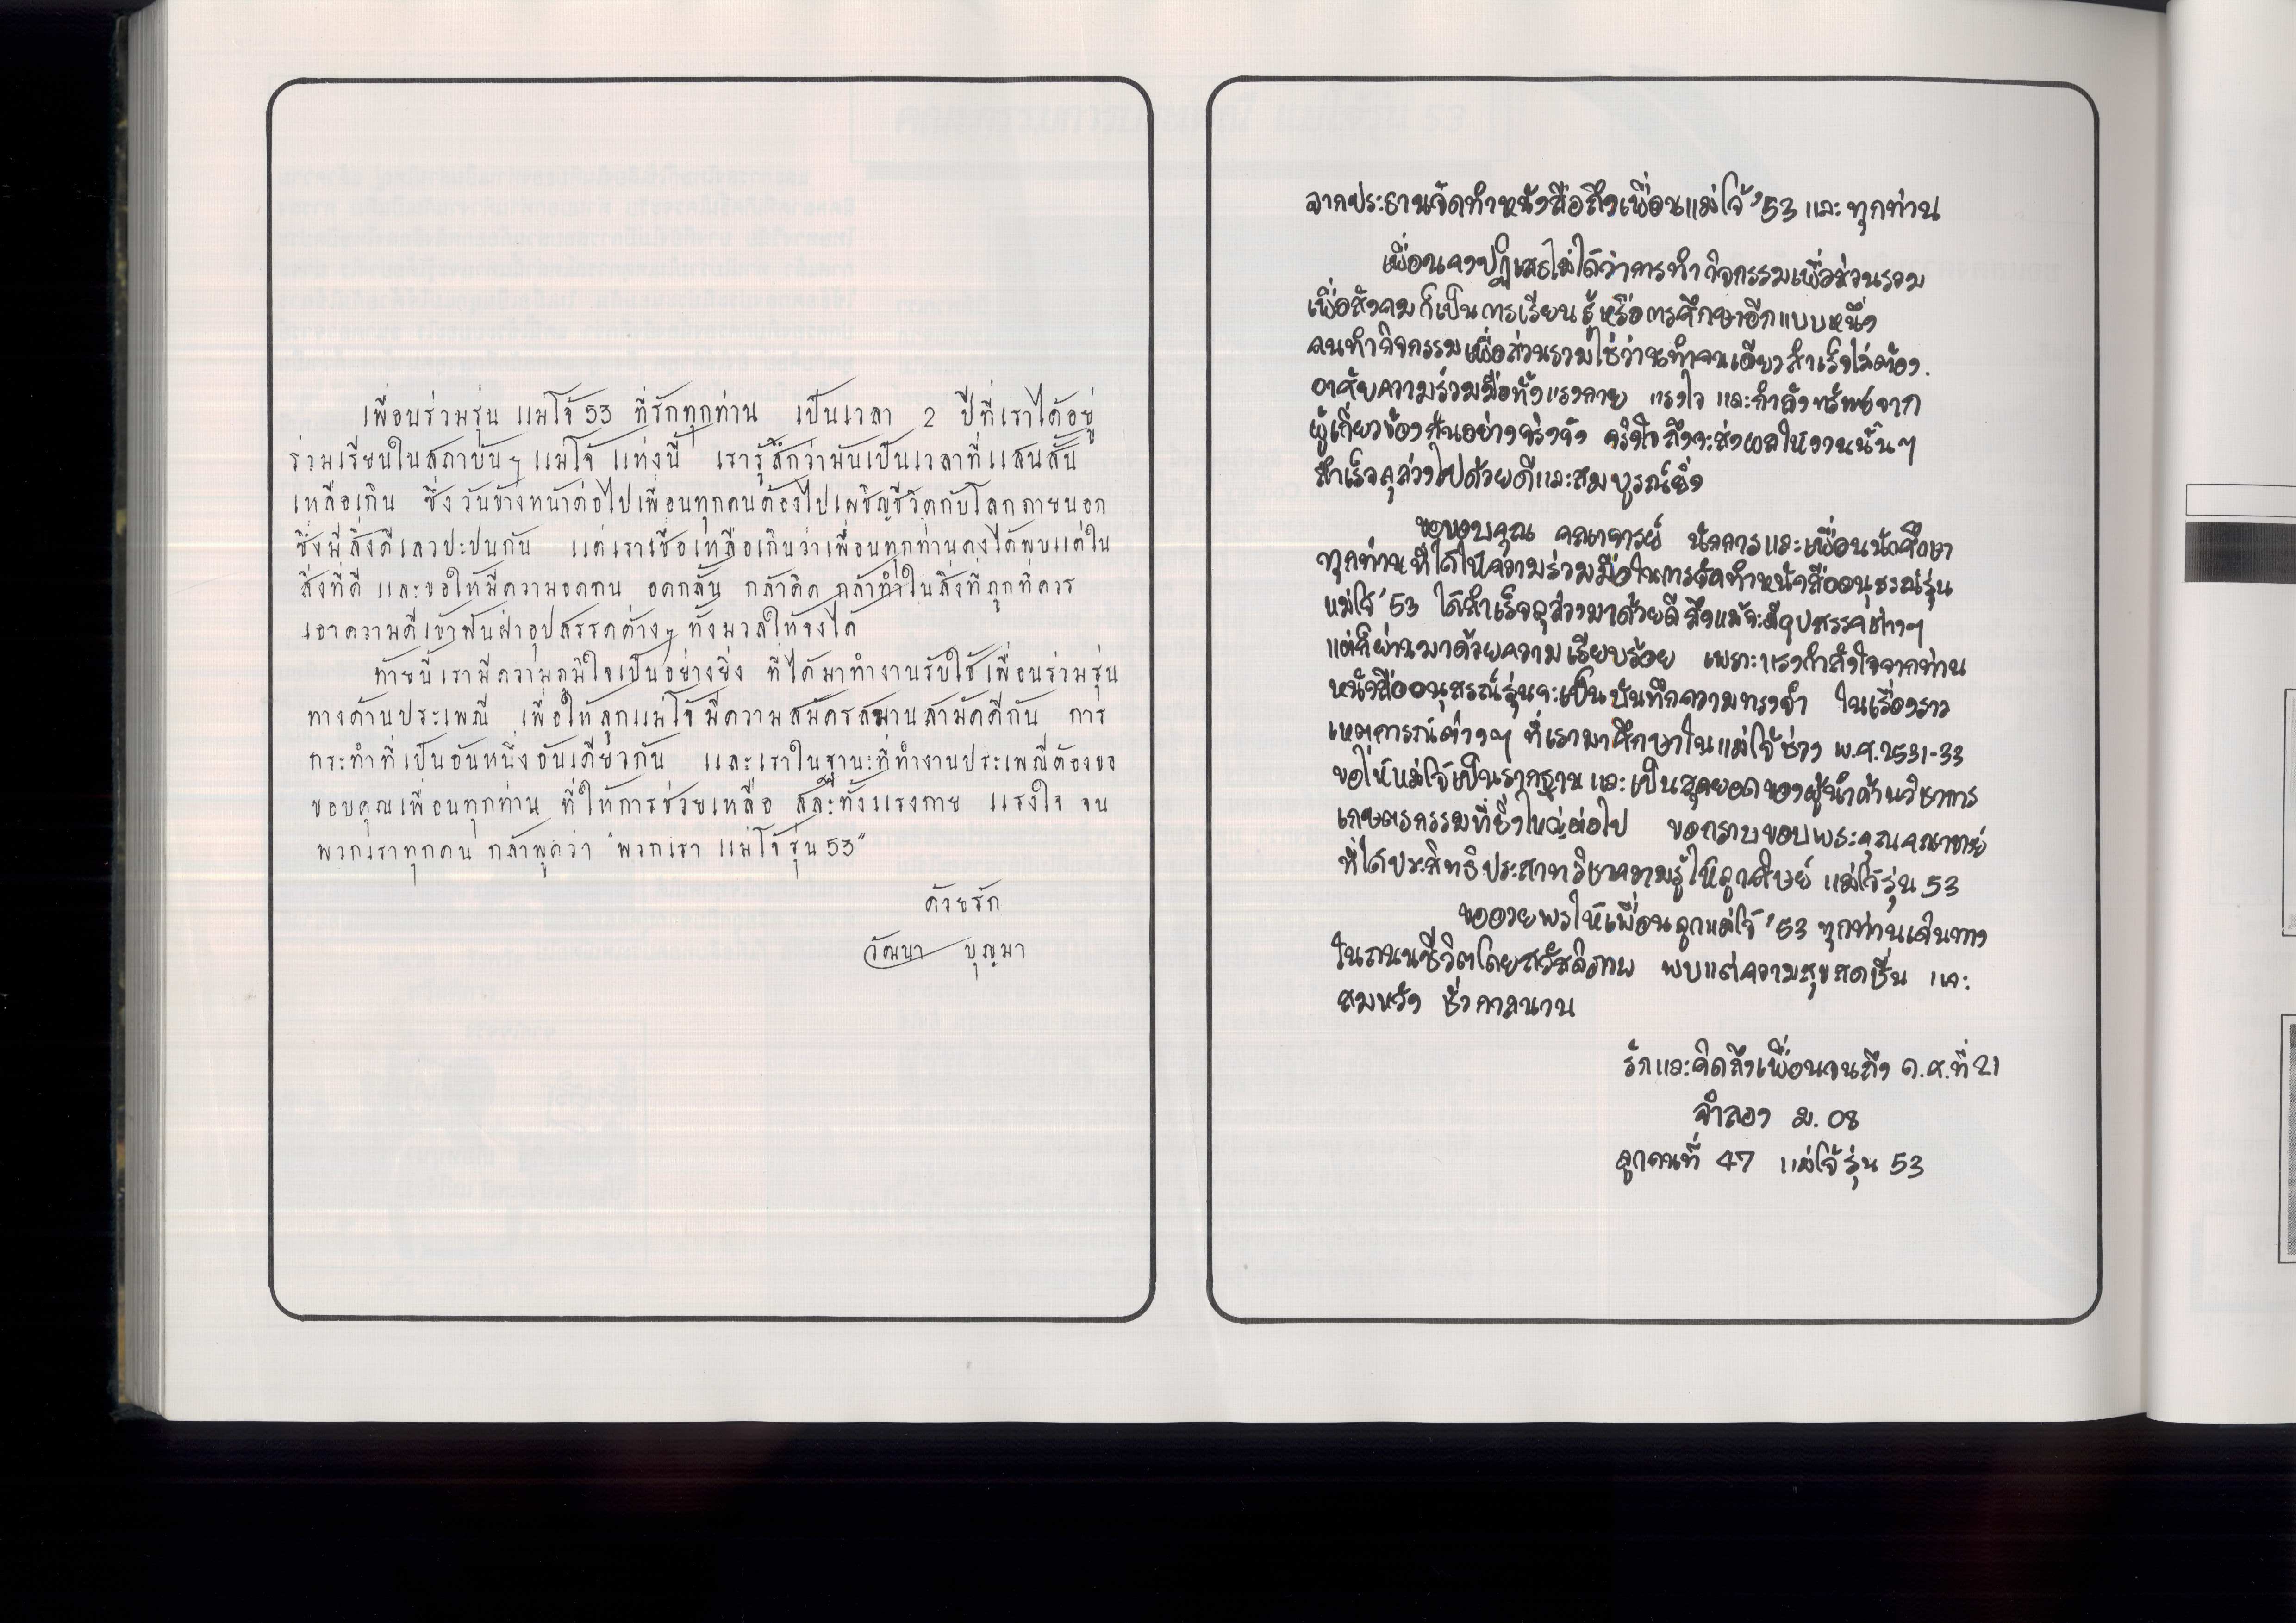 เพื่อนร่วมรุ่น แม่โจ้ 53 ที่รักทุกท่าน เป็นเวลา 2 ปีที่เราได้อยู่
ร่วมเรียนในสถาบันฯ แม่โจ้ แห่งนี้ เรารู้สึกว่ามันเป็นเวลาที่แสนสั้น
เหลือเกิน ซึ่งวันข้างหน้าต่อไปเพื่อนทุกคนต้องไปเผชิญชีวิตกับโลกภายนอก
ซึ่งมีสิ่งดีเลวปะปนกัน แต่เราเชื่อเหลือเกินว่าเพื่อนทุกท่านคงได้พบแต่ใน
สิ่งที่ดี และขอให้มีความอดทน อดกลั้น กล้าคิด กล้าทำในสิ่งที่ถูกที่ควร
เอาความดีเข้าฟันฝ่าอุปสรรคต่างๆ ทั้งมวลให้จงได้
ท้ายนี้เรามีความภูมิใจเป็นอย่างยิ่ง ที่ได้มาทำงานรับใช้เพื่อนร่วมรุ่น
ทางด้านประเพณี เพื่อให้ลูกแม่โจ้มีความสมัครสมานสามัคคีกัน การ
กระทำที่เป็นอันหนึ่งอันเดียวกัน และเราในฐานะที่ทำงานประเพณีต้องขอ
ขอบคุณเพื่อนทุกท่าน ที่ให้การช่วยเหลือ สละทั้งแรงกาย แรงใจ จน
พวกเราทุกคน กล้าพูดว่า "พวกเรา แม่โจ้ รุ่น 53"
ด้วยรัก
วัฒนา บุญมา
จากประธานจัดทำหนังสือถึงเพื่อนแม่โจ้ '53 และทุกท่าน
เพื่อนคงปฏิเสธไม่ได้ว่าการทำกิจกรรมเพื่อส่วนรวม
เพื่อสังคมก็เป็นการเรียนรู้หรือการศึกษาอีกแบบหนึ่ง
คนทำกิจกรรมเพื่อส่วนรวมใช่ว่าจะทำคนเดียวสำเร็จไม่ต้อง
อาศัยความร่วมมือทั้งแรงกาย แรงใจ และกำลังทรัพย์จาก
ผู้เกี่ยวข้องกันอย่างจริงจัง จริงใจถึงจะส่งผลให้งานนั้นๆ
สำเร็จลุล่วงไปด้วยดีและสมบูรณ์ยิ่ง
ขอขอบคุณ คณาจารย์ นักการและเพื่อนนักศึกษา
ทุกท่านที่ได้ให้ความร่วมมือในการจัดทำหนังสืออนุสรณ์รุ่น
แม่โจ้ '53 ได้สำเร็จลุล่วงมาด้วยดี ถึงแม้จะมีอุปสรรคต่างๆ
แต่ก็ผ่านมาด้วยความเรียบร้อย เพราะแรงกำลังใจจากท่าน
หนังสืออนุสรณ์รุ่นจะเป็นบันทึกความทรงจำ ในเรื่องราว
เหตุการณ์ต่างๆ ที่เรามาศึกษาในแม่โจ้ช่วง พ.ศ.2531-33
ขอให้แม่โจ้เป็นรากฐานและเป็นสุดยอดของผู้นำด้านวิชาการ
เกษตรกรรมที่ยิ่งใหญ่ต่อไป ขอกราบขอบพระคุณคณาจารย์
ที่ได้ประสิทธิประสาทวิชาความรู้ให้ลูกศิษย์ แม่โจ้รุ่น 53
ขออวยพรให้เพื่อนลูกแม่โจ้ '53 ทุกท่านเดินทาง
ในถนนชีวิตโดยสวัสดิภาพ พบแต่ความสุขสดชื่น และ
สมหวัง ชั่วกาลนาน
รักและคิดถึงเพื่อนจนถึง ค.ศ.ที่ 21
จำลอง ม. 08
ลูกคนที่ 47 แม่โจ้รุ่น 53